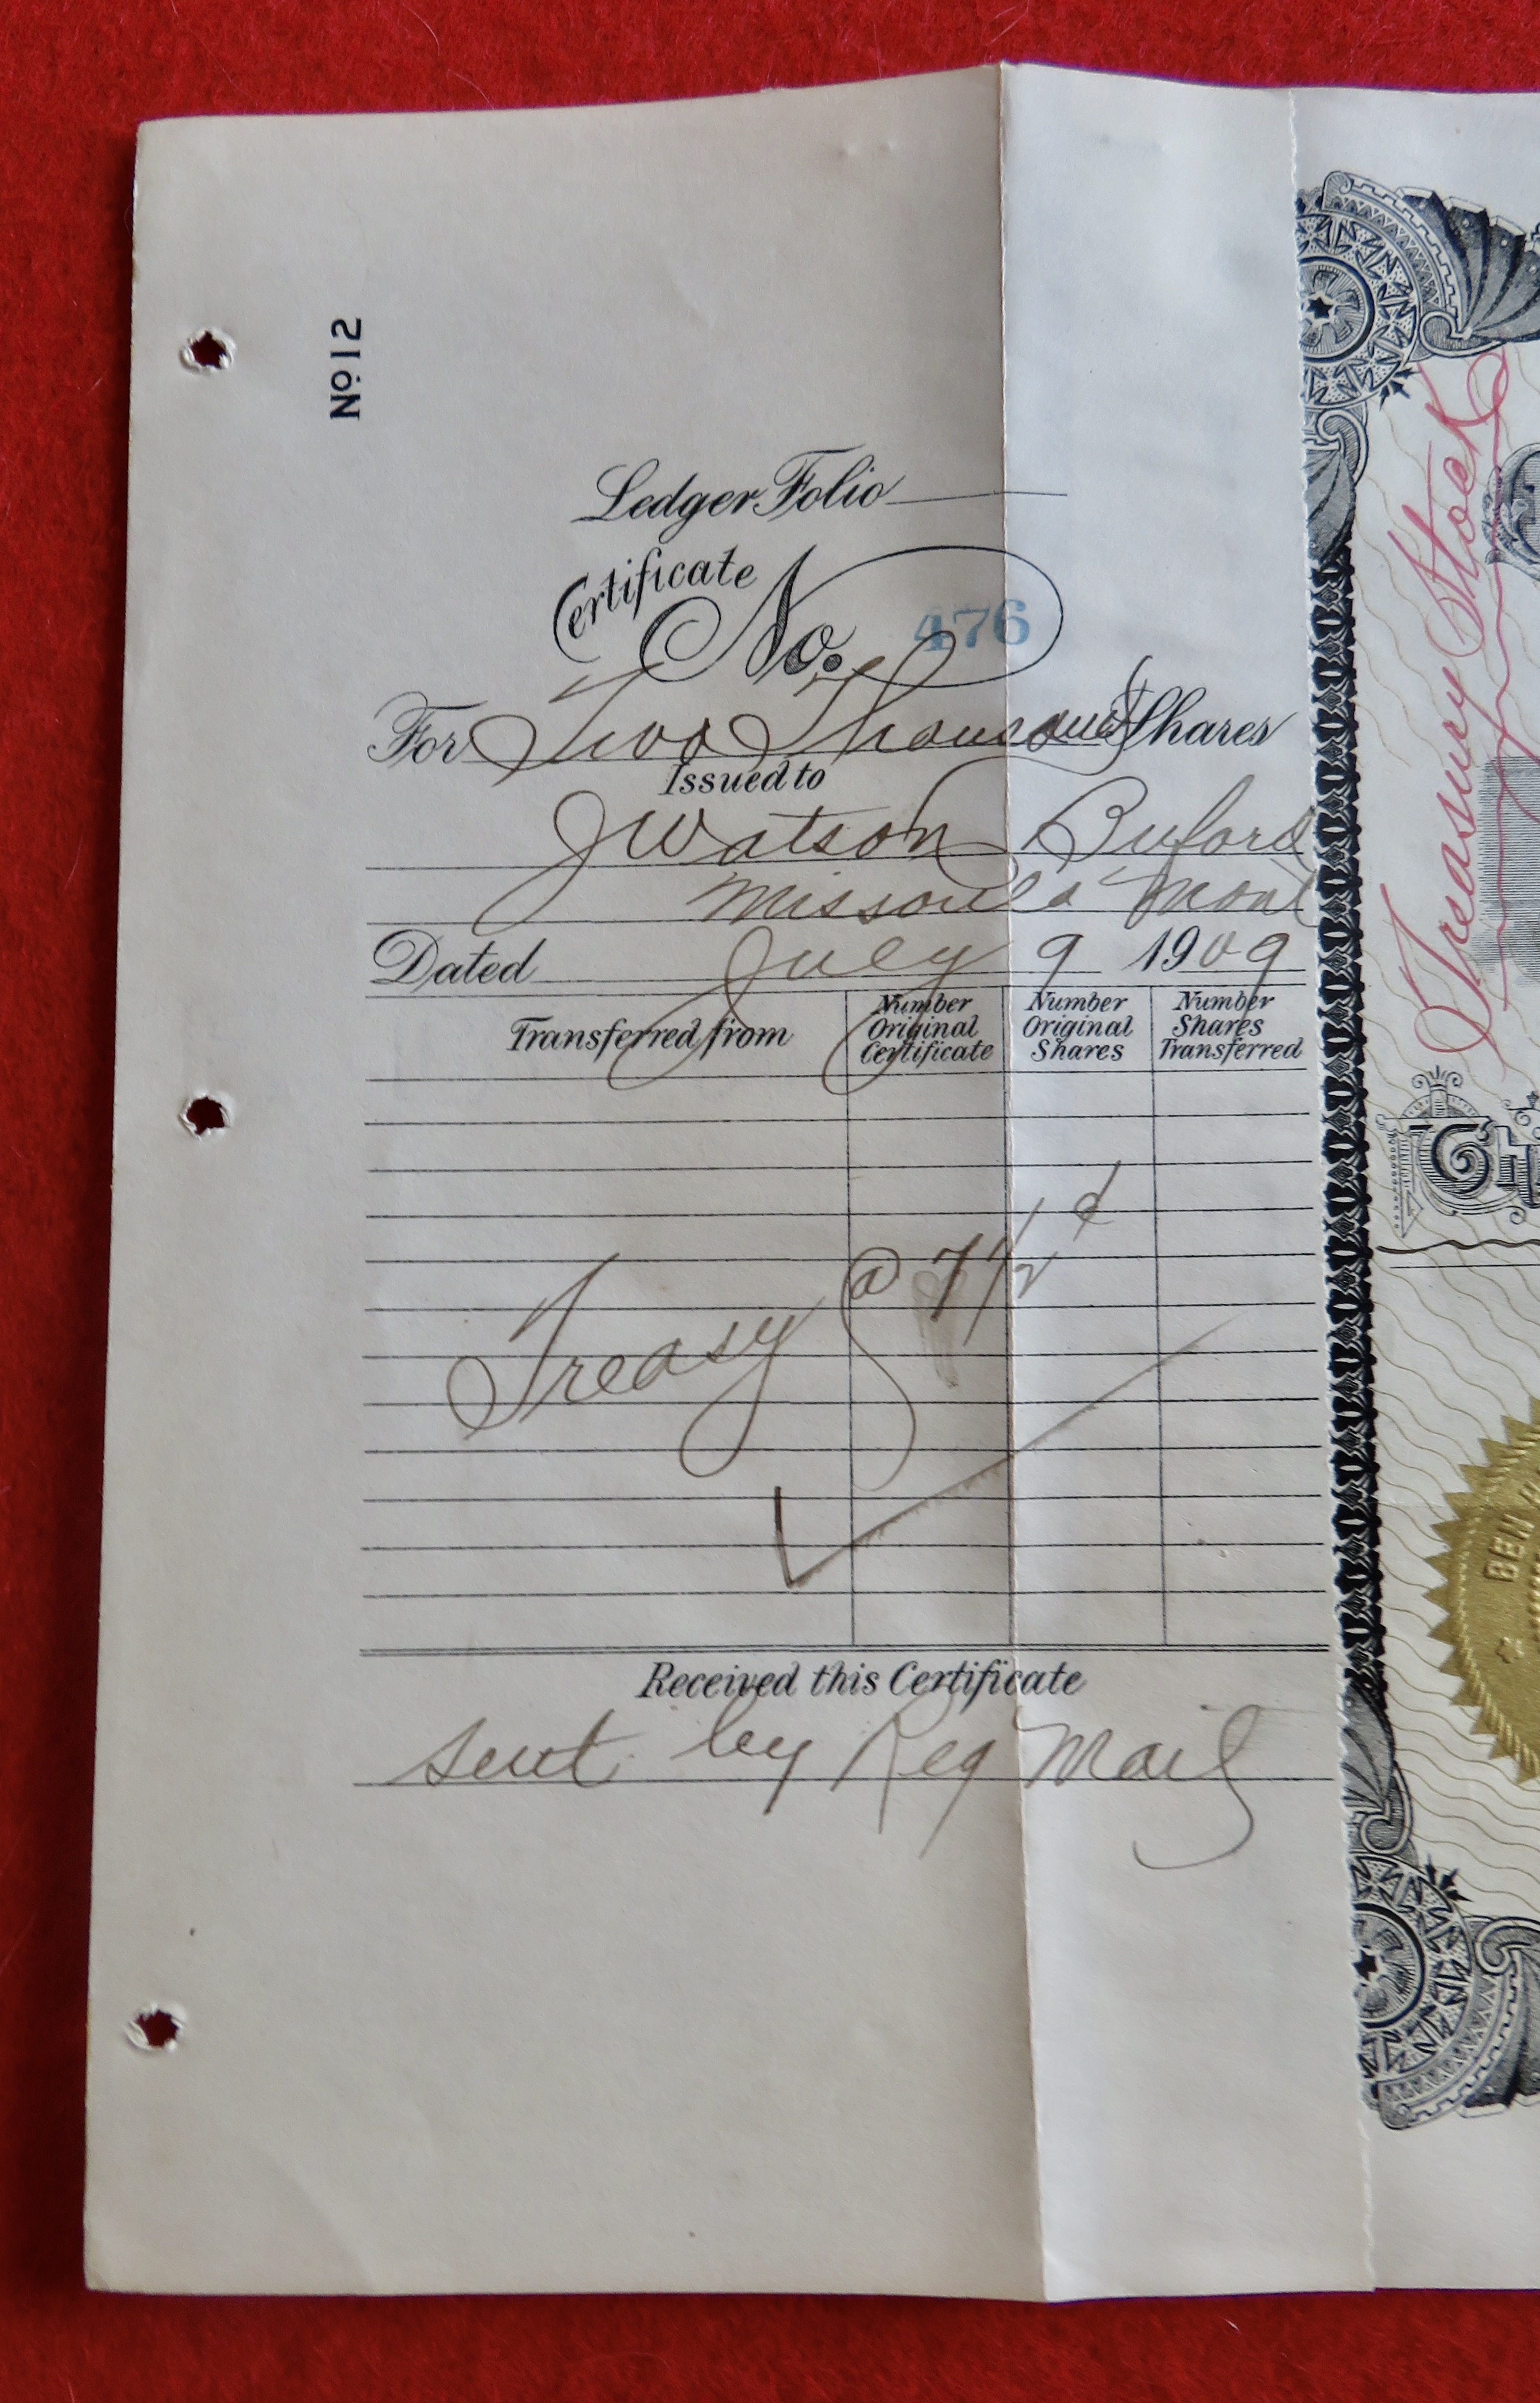 No 12
Ledger Folio
Certificate
No. 476
For Two Thousand Shares
Issued to
J Watson Buford
Missoula Mont
Dated July 9 1909
Transferred from
Number Original Certificate
Number Original Shares
Number Shares Transferred
Treasy @ 7 1/2 ¢
Received this Certificate
sent by Reg Mail
Treasury Stock